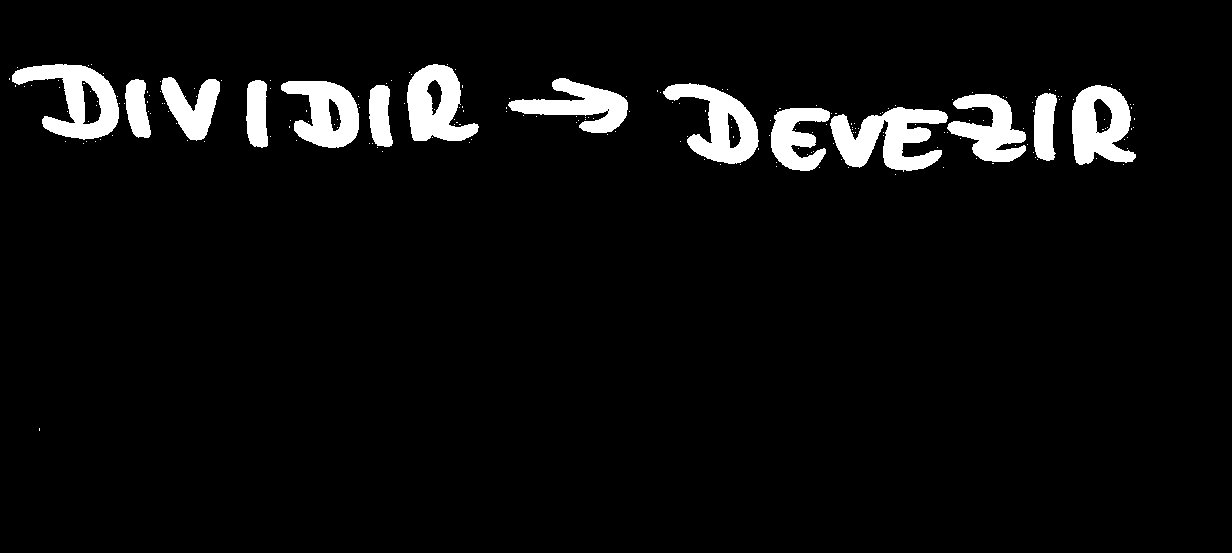 DIVIDIR → DEVEZIR